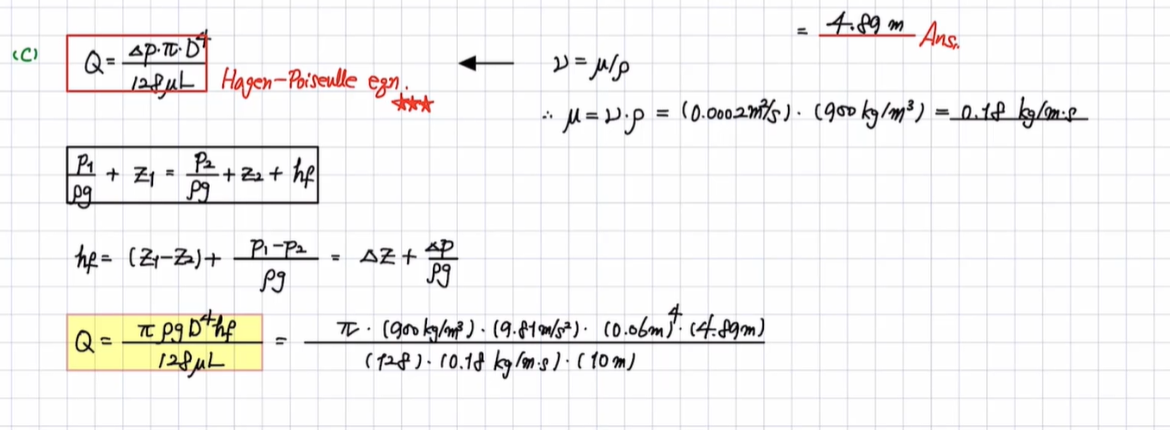 = 4.89 m Ans.
(C) Q = Δp·π·D⁴ / 128μL Hagen-Poiseulle eqn. ★★★ ← ν = μ/ρ
∴ μ = ν·ρ = (0.0002 m²/s) · (900 kg/m³) = 0.18 kg/m·s
P₁/ρg + z₁ = P₂/ρg + z₂ + hf
hf = (z₁-z₂) + P₁-P₂/ρg = Δz + Δp/ρg
Q = πρgD⁴hf / 128μL = π · (900 kg/m³) · (9.81 m/s²) · (0.06m)⁴ · (4.89m) / (128) · (0.18 kg/m·s) · (10m)